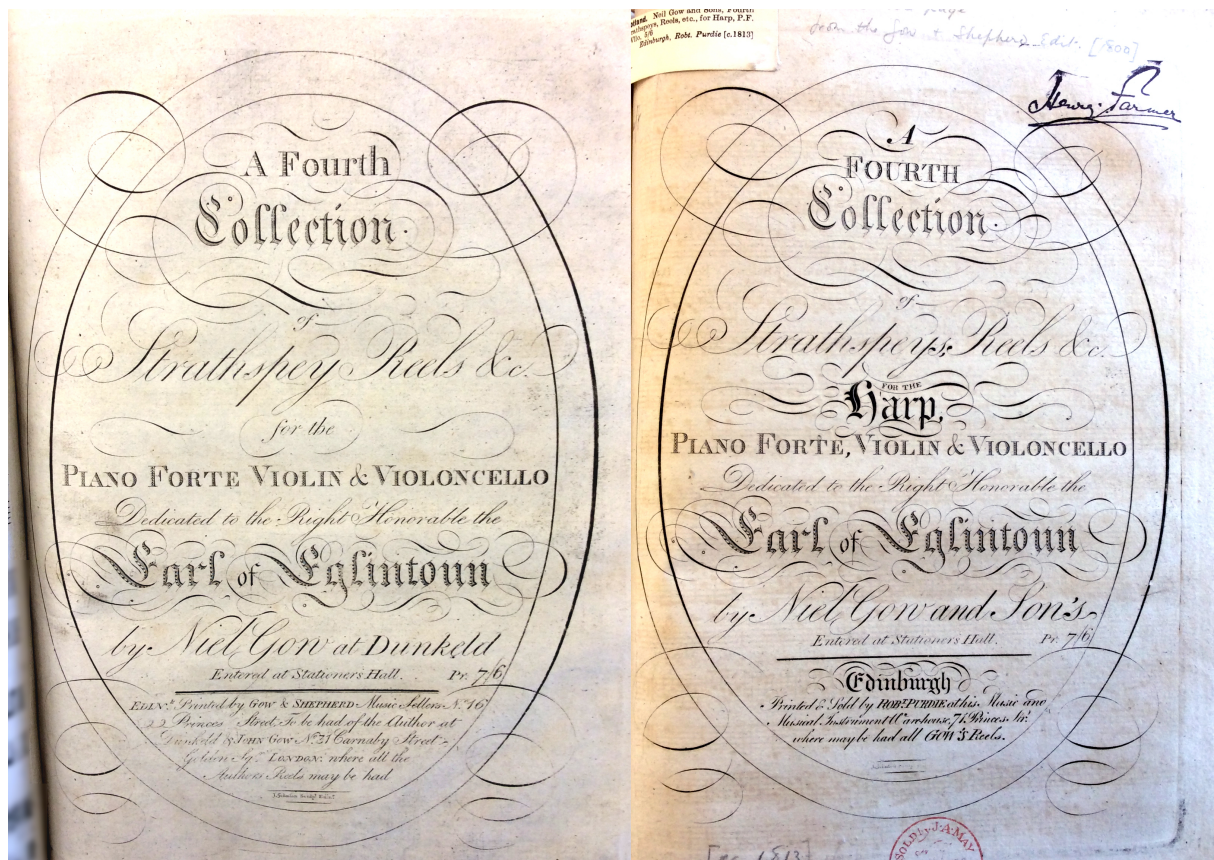 A Fourth
Collection
of
Strathspey Reels &c.
for the
PIANO FORTE VIOLIN & VIOLONCELLO
Dedicated to the Right Honorable the
Earl of Eglintoun
by Niel Gow at Dunkeld
Entered at Stationers Hall. Pr. 7/6
EDINr. Printed by GOW & SHEPHERD Music Sellers No. 16
Princes Street, To be had of the Author at
Dunkeld & JOHN GOW No. 31 Carnaby Street
Golden Sqr. LONDON: where all the
Authors Reels may be had
Neil Gow and Sons, Fourth
Reels, etc., for Harp, P.F.
5/6
Edinburgh, Robt. Purdie [c.1813]
page
from the Gow & Shepherd Edit. [1800]
Henry Farmer
A
FOURTH
Collection
of
Strathspeys, Reels &c.
FOR THE
Harp,
PIANO FORTE, VIOLIN & VIOLONCELLO
Dedicated to the Right Honorable the
Earl of Eglintoun
by Niel Gow and Son's
Entered at Stationers Hall. Pr. 7/6
Edinburgh
Printed & Sold by ROBt. PURDIE at his Music and
Musical Instrument Warehouse, 71, Princes Str.
where may be had all GOW'S Reels.
SOLD by J.A. MAY